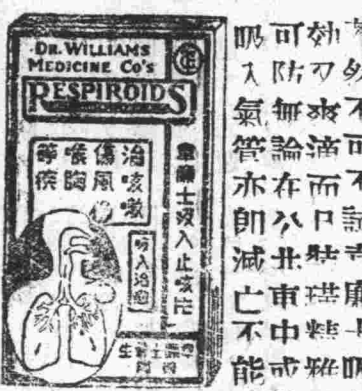 DR. WILLIAMS
MEDICINE Co's
RESPIROIDS
韋廉士吸入止咳片
治咳嗽
傷風
喉胸
等疾
効力爽適而且裝璜精雅
可防無論在公共車中或
吸入氣管亦即滅亡不能